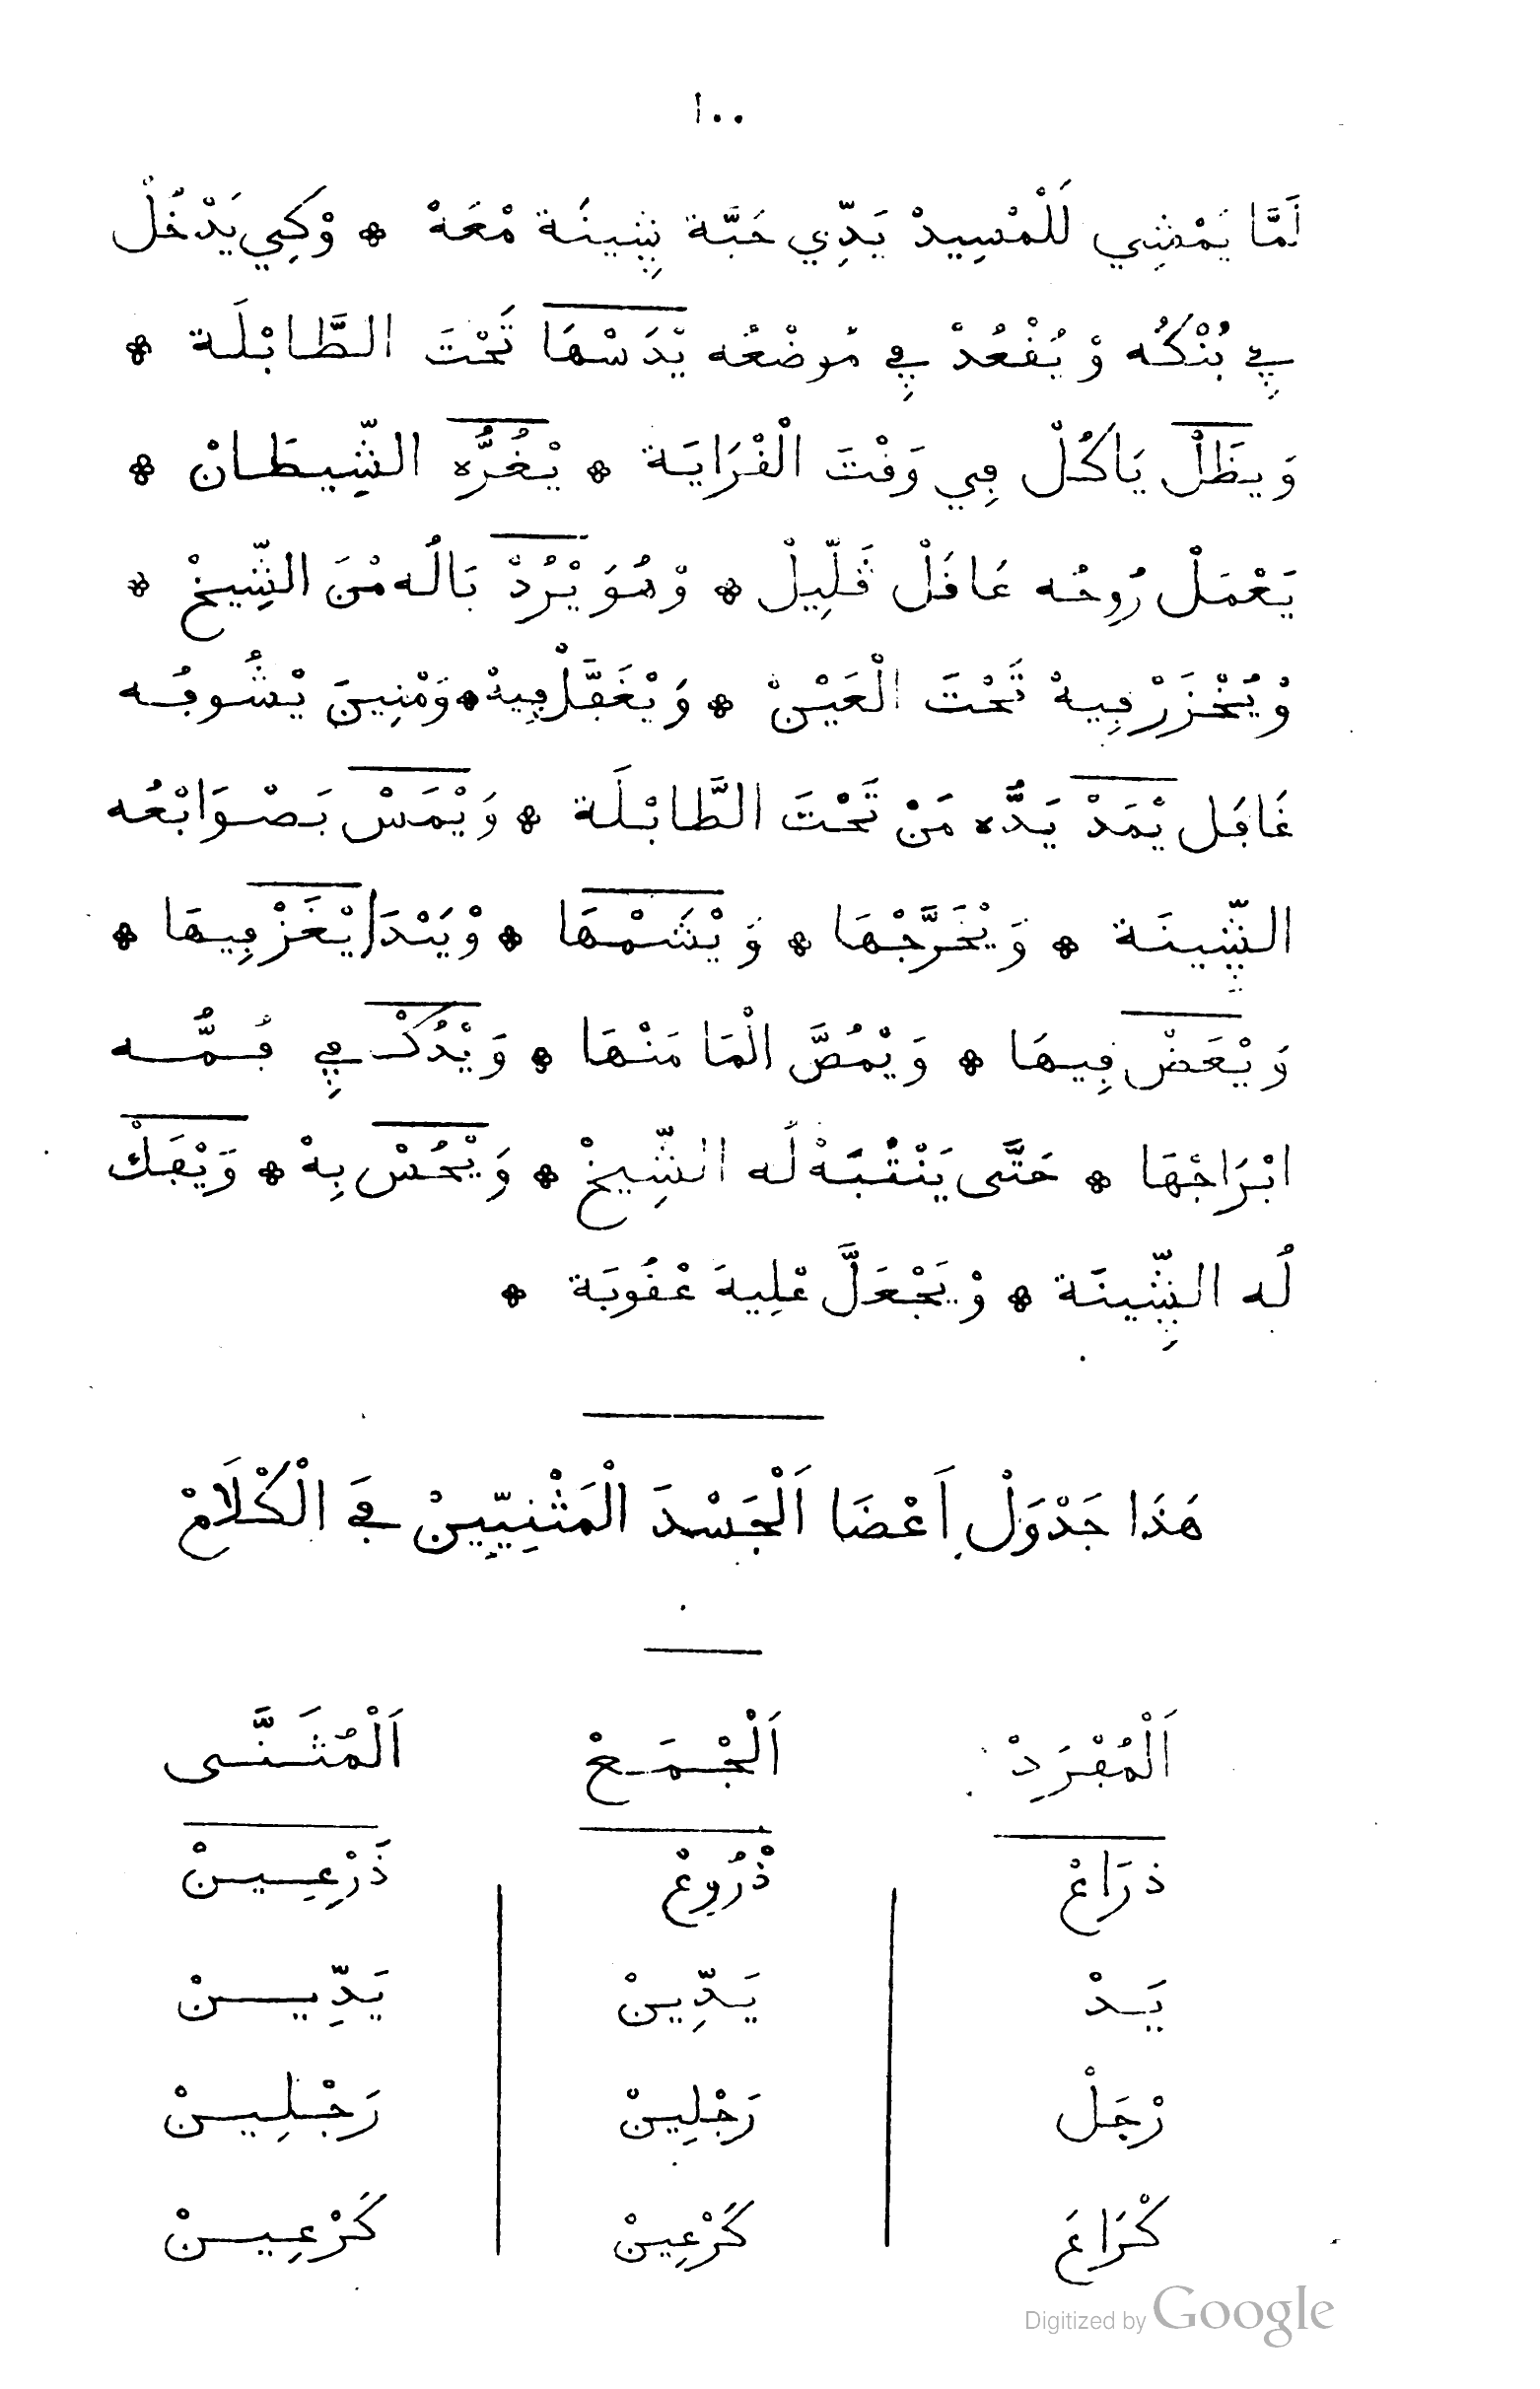 ١٠٠
لَمَّا يَمْشِي لَلْمْسِيدْ يَدِّي حَبَّة تشِينَة مْعَهْ * وْكِي يَدْخُلْ
ڢِي بُنْكُه وْ يُڧْعُدْ ڢِي مُوضْعُه يْدَسْهَا تَحْتَ الطَّابْلَة *
وَيظَلْ يَاكُلْ ڢِي وَڧْتَ الْڧْرَايَة * يْغُرُّه الشِّيطَانْ *
يَعْمَلْ رُوحُه عَاقَلْ ڧَلِّيلْ * وْهُوَ يْرُدْ بَالُه مْنَ الشِّيخْ *
وْيُخْزَرْ ڢِيهْ تَحْتَ الْعَيْنْ * وَيْغَڢَّلْ ڢِيهْ * وَمْنِينَ يْشُوڢُه
غَاڢَل يْمَدْ يَدُّه مَنْ تَحْتَ الطَّابْلَة * وَيْمَسْ بَصْوَابْعُه
التشِّينَة * وَيْخَرَّجْهَا * وَيْشَمْهَا * وْيَبْدَا يْغَزْ ڢِيهَا *
وَيْعَضْ ڢِيهَا * وَيْمُصَّ الْمَا مَنْهَا * وَيْدُكْ ڢِي ڢُمُّه
ابْرَاجْهَا * حَتَّى يَنْتْبَهْ لُه الشِّيخْ * وَيْحُسْ بِهْ * وَيْڢَكْ
لُه التشِّينَة * وْيَجْعَلَّ عْلِيهَ عْڧُوبَة *
هَذَا جَدْوَلْ اَعْضَا اَلْجَسْدَ الْمَثْنِيِّينْ ڢَى الْكْلَامْ
اَلْمُڢْرَدْ اَلْجْمَعْ اَلْمُثَنَّى
ذرَاعْ ذْرُوعْ ذَرْعِينْ
يَدْ يَدِّينْ يَدِّينْ
رْجَلْ رَجْلِينْ رَجْلِينْ
كْرَاعَ كَرْعِينْ كَرْعِينْ
Digitized by Google